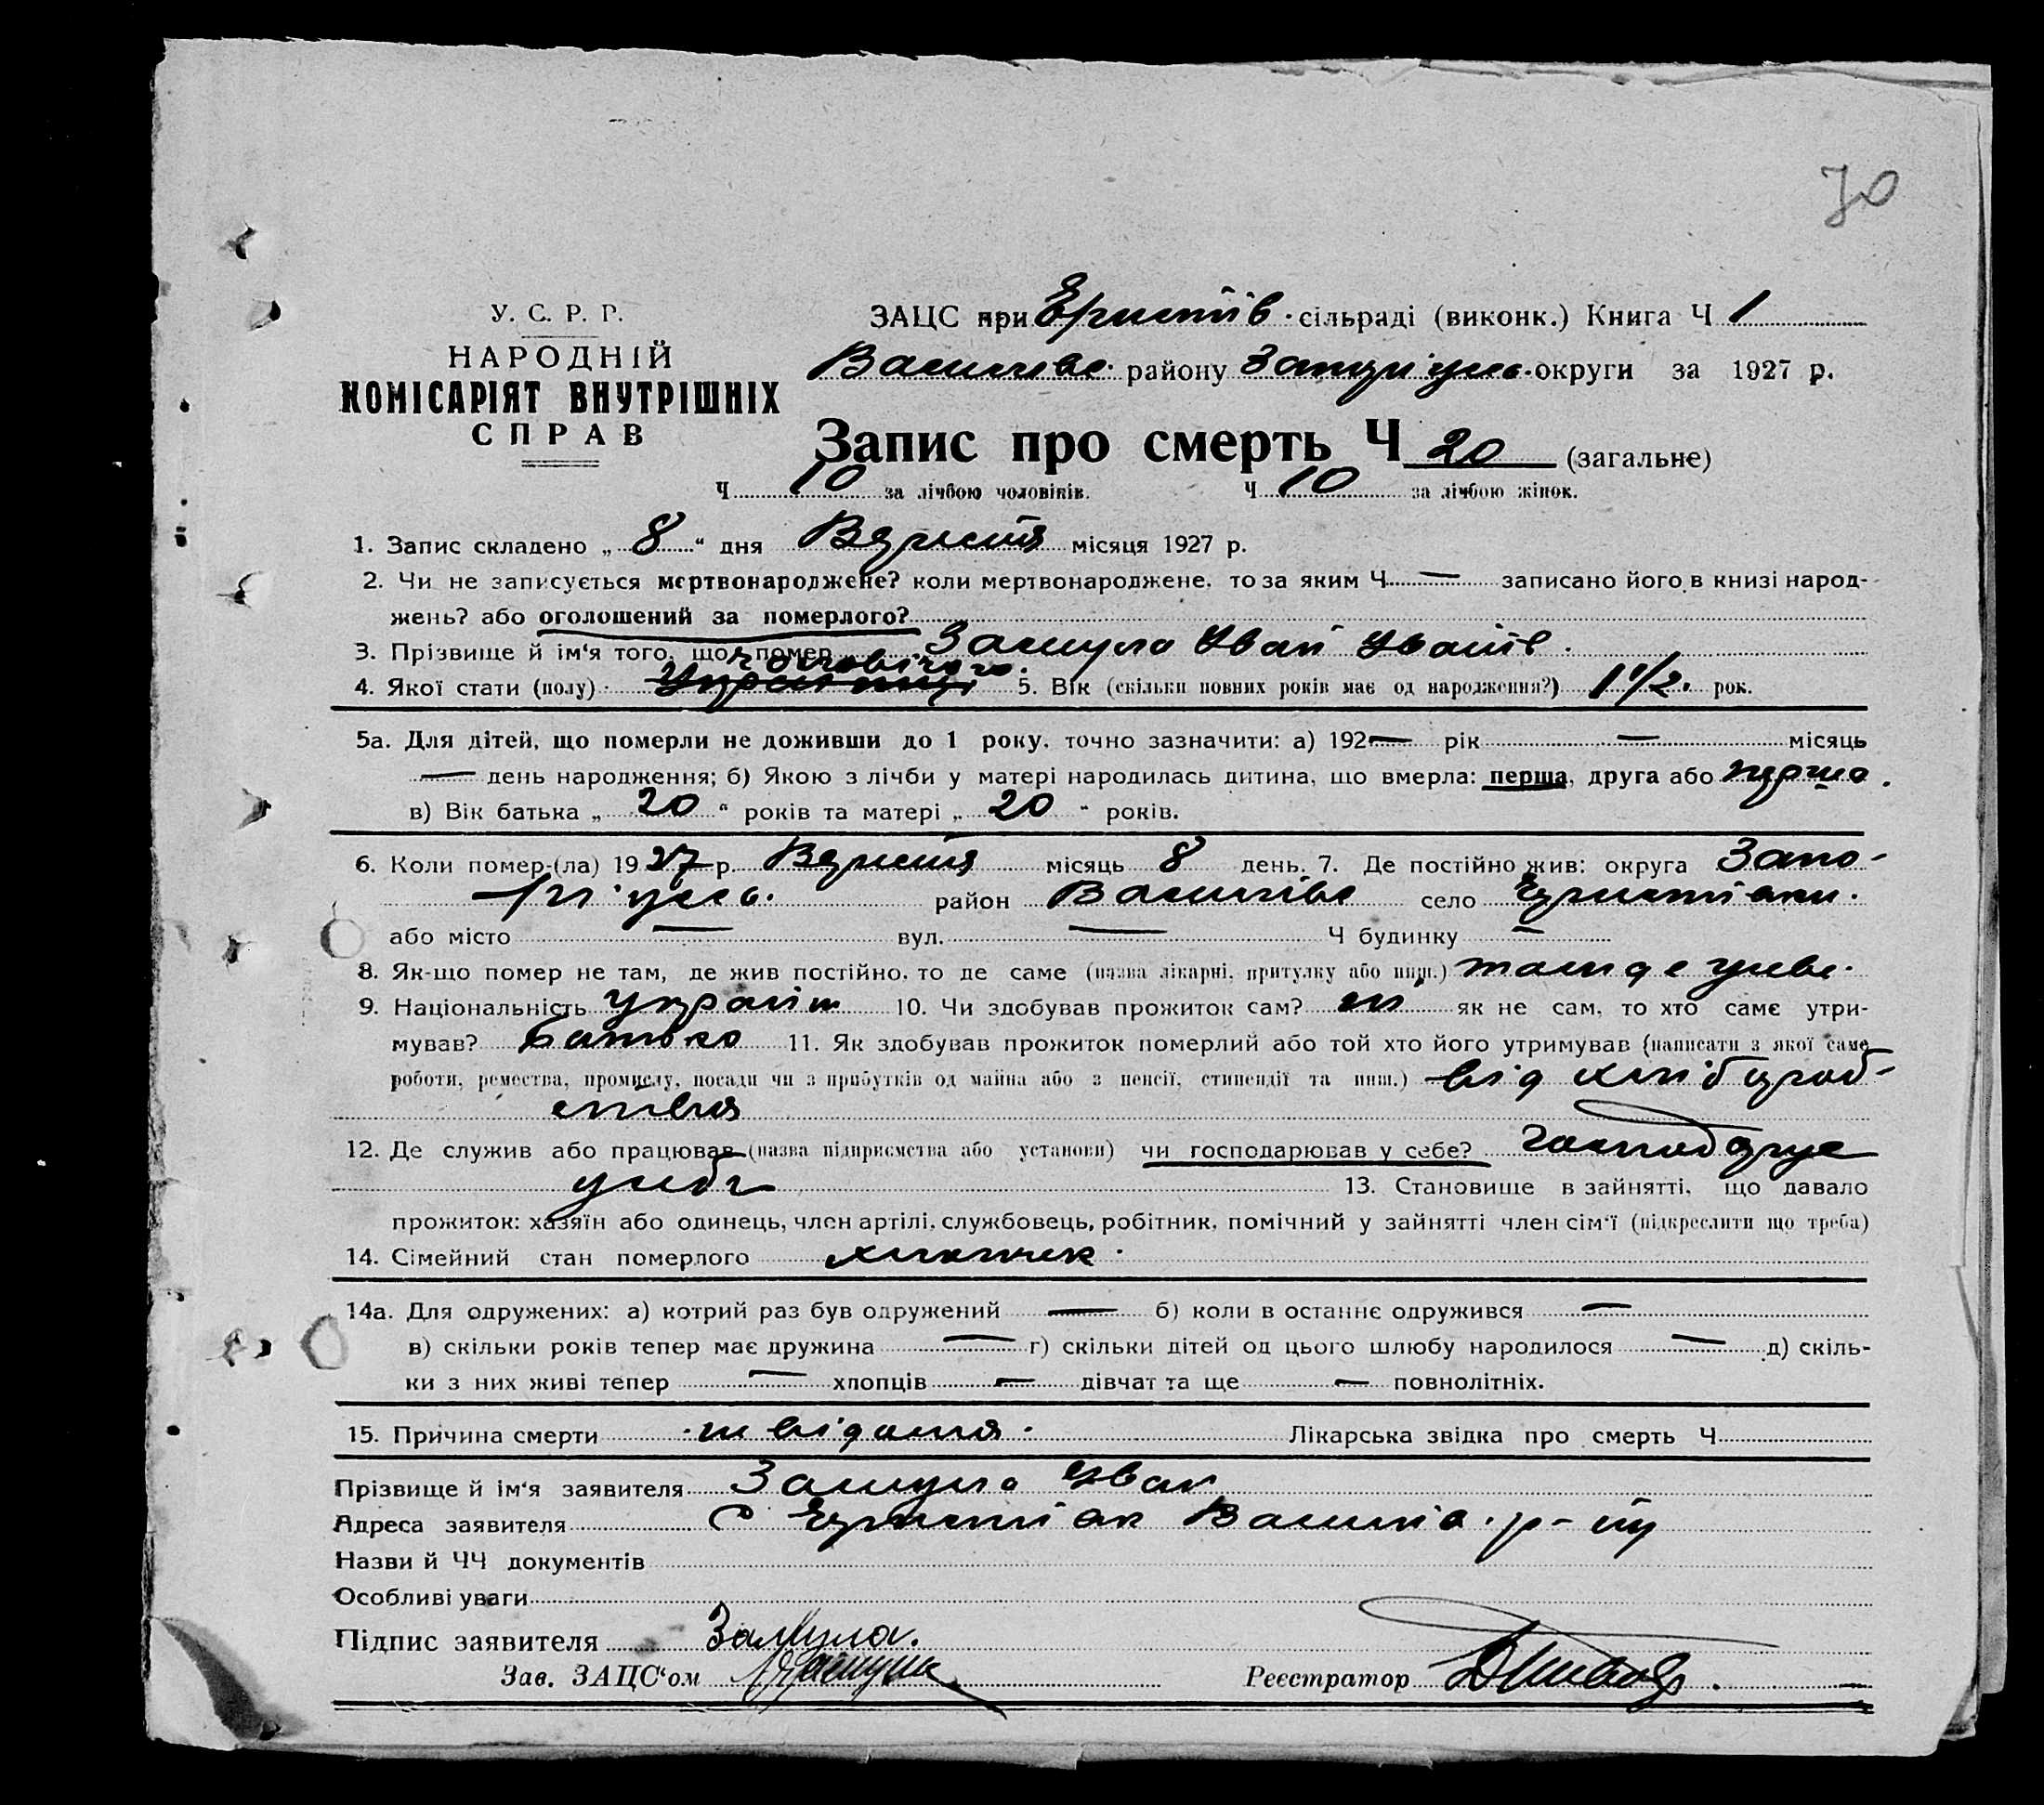 70
У. С. Р. Р.
НАРОДНІЙ
КОМІСАРІЯТ ВНУТРІШНІХ
СПРАВ
ЗАЦС при сільраді (виконк.) Книга Ч 1
Василівс. району округи за 1927 р.
Запис про смерть Ч 20 (загальне)
Ч 10 за лічбою чоловіків. Ч 10 за лічбою жінок.
1. Запис складено „ 8 “ дня Вересня місяця 1927 р.
2. Чи не записується мертвонароджене? коли мертвонароджене, то за яким Ч — записано його в книзі народ-
жень? або оголошений за померлого?
3. Прізвище й ім‘я того, що помер Іван
чоловічого
4. Якої стати (полу) 5. Вік (скільки повних років має од народження?) 1 1/2. рок.
5а. Для дітей, що померли не доживши до 1 року, точно зазначити: а) 192— рік — місяць
— день народження; б) Якою з лічби у матері народилась дитина, що вмерла: перша, друга або перша.
в) Вік батька „ 20 “ років та матері „ 20 “ років.
6. Коли помер-(ла) 1927 р. Вересня місяць 8 день. 7. Де постійно жив: округа Запо-
район Василівс село
або місто — вул. — Ч будинку —
8. Як-що помер не там, де жив постійно, то де саме (назва лікарні, притулку або инш.)
9. Національність україн 10. Чи здобував прожиток сам? ні як не сам, то хто саме утри-
мував? батько 11. Як здобував прожиток померлий або той хто його утримував (написати з якої саме
роботи, ремества, промислу, посади чи з прибутків од майна або з пенсії, стипендії та инш.) від хлібороб-
ства
12. Де служив або працював (назва підприємства або установи) чи господарював у себе?
у себе 13. Становище в зайнятті, що давало
прожиток: хазяїн або одинець, член артілі, службовець, робітник, помічний у зайнятті член сім‘ї (підкреслити що треба)
14. Сімейний стан померлого хлопчик.
14а. Для одружених: а) котрий раз був одружений — б) коли в останнє одружився —
в) скільки років тепер має дружина — г) скільки дітей од цього шлюбу народилося — д) скіль-
ки з них живі тепер — хлопців — дівчат та ще — повнолітніх.
15. Причина смерти Лікарська звідка про смерть Ч
Прізвище й ім‘я заявителя Іван
Адреса заявителя С р-ну
Назви й ЧЧ документів
Особливі уваги
Підпис заявителя
Зав. ЗАЦС‘ом Реєстратор